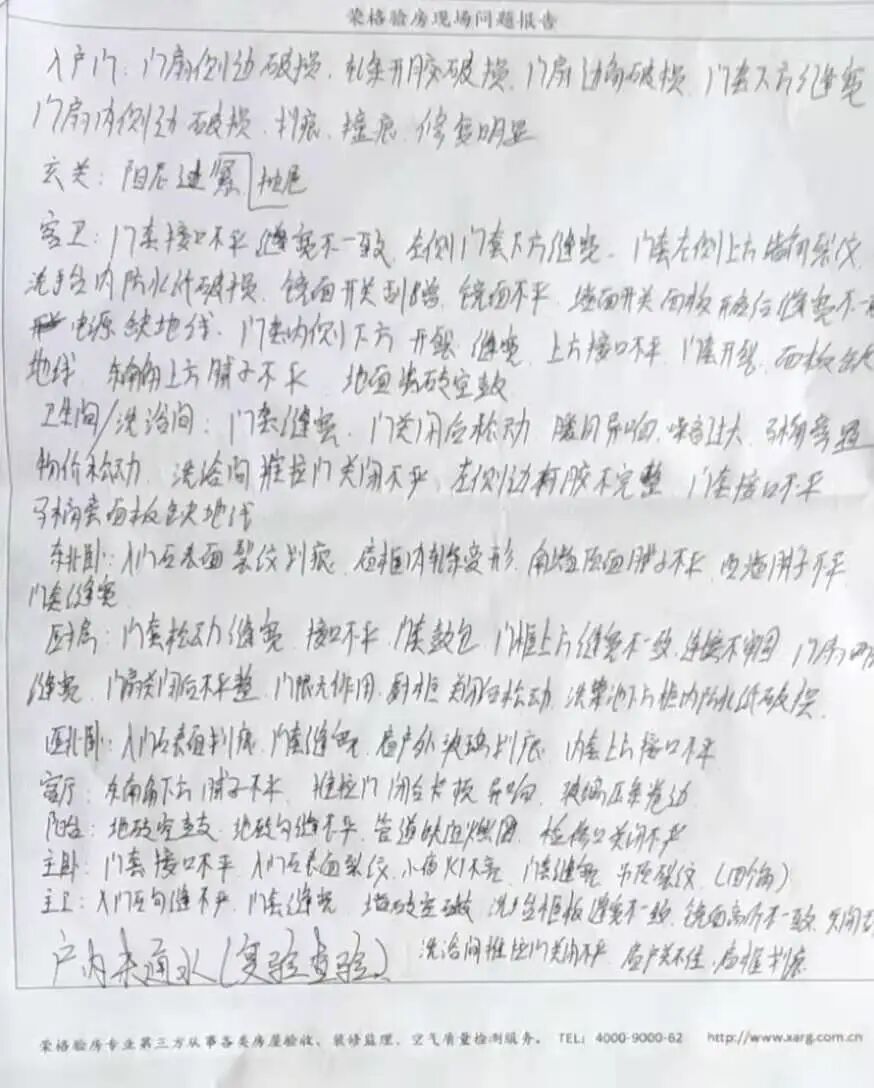 荣格验房现场问题报告
入户门：门扇侧边破损、轧条开胶破损、门扇边角破损、门套下方缝宽
门扇内侧边破损、划痕、撞痕、修复明显
玄关：阻尼过紧 抽屉
客卫：门套接口不平 缝宽不一致、左侧门套下方缝宽、门套左侧上方墙面裂纹、
洗手台内防水纸破损、镜面开关 镜面不平、墙面开关面板 缝宽不一
电源缺地线、门套内侧下方开裂 缝宽、上方接口不平、门套开裂、面板
地线、东南角上方腻子不平 地面瓷砖空鼓
卫生间/洗浴间：门套缝宽、门关闭后松动、暖风异响、噪音过大、马桶
松动、洗浴间推拉门关闭不严、左侧边有胶不完整、门套接口不平
马桶旁面板缺地线
东北卧：入门石表面裂纹划痕、窗框内轧条变形、南墙顶面腻子不平、西墙腻子不平、
门套缝宽
厨房：门套松动缝宽、接口不平、门套鼓包、门框上方缝宽不一致、连接不牢固、门扇
缝宽、门扇关闭后不平整、门限无作用、厨柜关闭后松动、洗菜池下方柜内防水纸破损、
西北卧：入门石表面划痕、门套缝宽、窗户外玻璃划痕、内套上方接口不平
客厅：东南角下方腻子不平、推拉门闭合卡顿 异响、玻璃压条卷边
阳台：地砖空鼓、地砖勾缝不平、管道 检修口关闭不严
主卧：门套接口不平、入门石表面裂纹、小夜灯不亮、门套缝宽、吊顶裂纹、（四个角）
主卫：入门石勾缝不平、门套缝宽、地砖空鼓、洗手台柜板缝宽不一致、镜面高低不一致、
洗浴间推拉门关闭不严、窗户关不住、窗框划痕
户内未通水（复验查验）
荣格验房专业第三方从事各类房屋验收、装修监理、空气质量检测服务。 TEL：4000-9000-62 http://www.xarg.com.cn